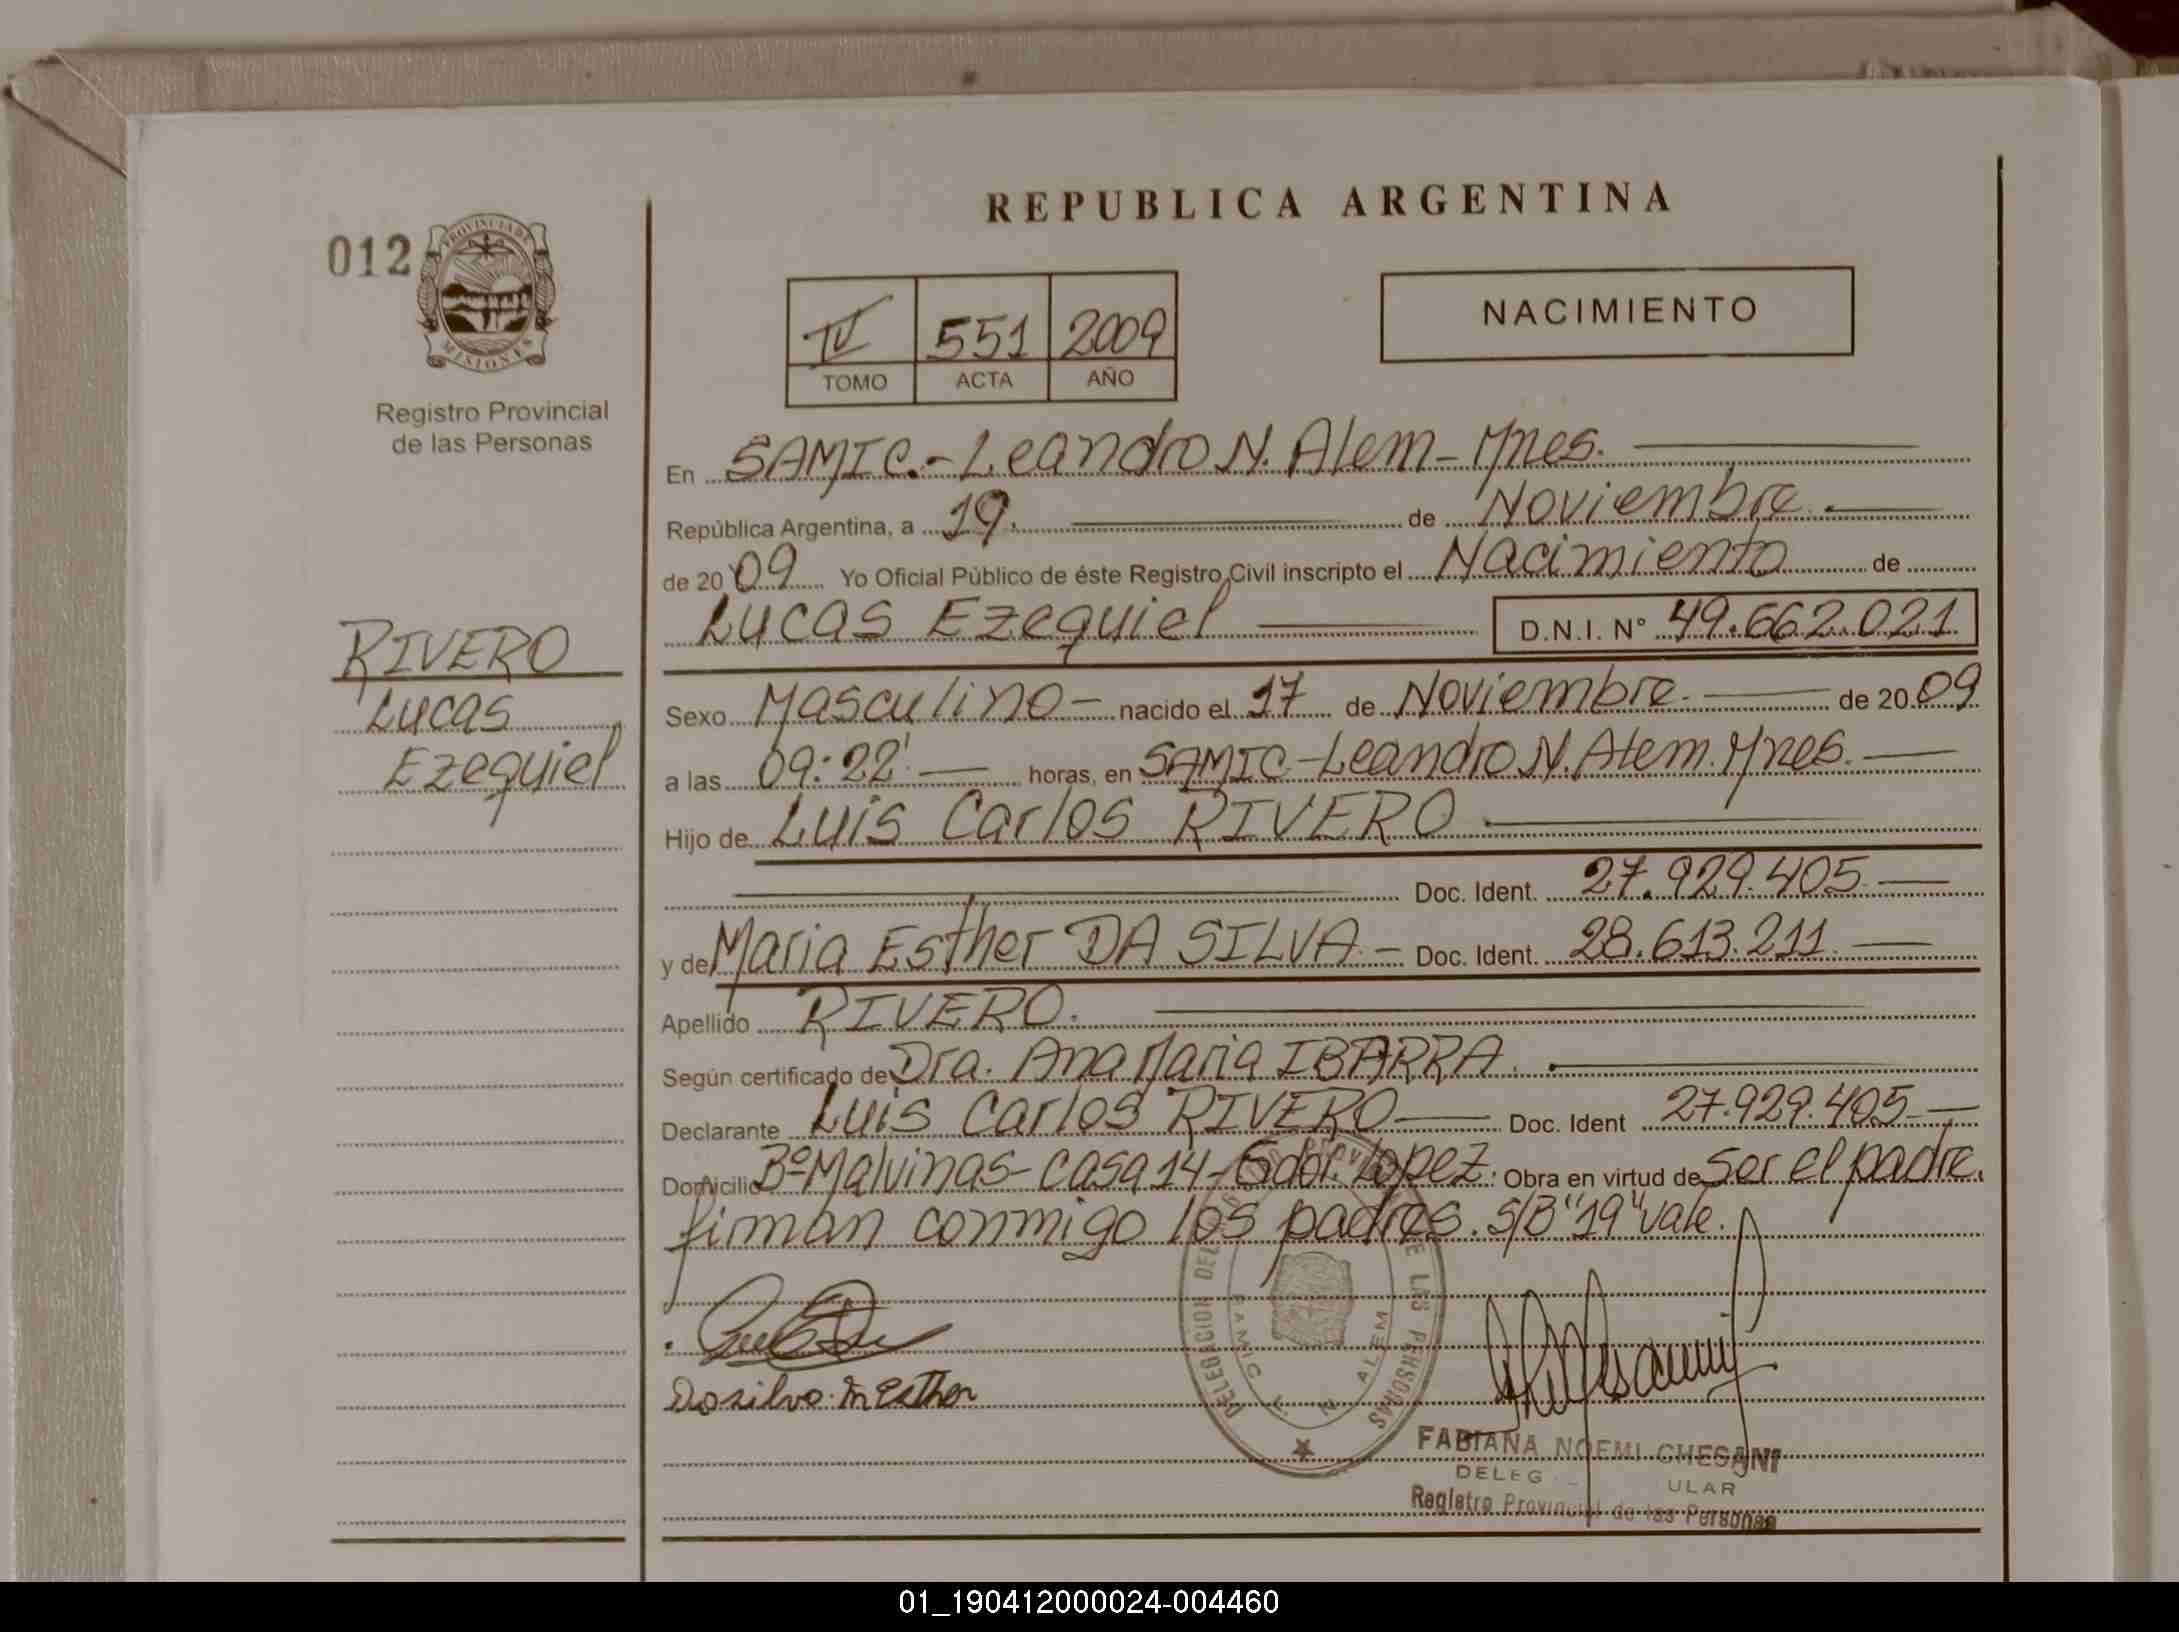 REPUBLICA ARGENTINA
012
PROVINCIA DE
MISIONES
Registro Provincial
de las Personas
IV 551 2009
TOMO ACTA AÑO
NACIMIENTO
En SAMIC.- Leandro N. Alem - Mnes.
República Argentina, a 19. de Noviembre
de 2009 Yo Oficial Público de éste Registro Civil inscripto el Nacimiento de
Lucas Ezequiel D.N.I. N° 49.662.021
RIVERO
Lucas
Ezequiel
Sexo Masculino - nacido el 17 de Noviembre. de 2009
a las 09:22' horas, en SAMIC-Leandro N. Alem. Mnes.
Hijo de Luis Carlos RIVERO
Doc. Ident. 27.929.405
y de Maria Esther DA SILVA. - Doc. Ident. 28.613.211
Apellido RIVERO.
Según certificado de Dra. Ana Maria IBARRA.
Declarante Luis Carlos RIVERO Doc. Ident 27.929.405
Domicilio Bº Malvinas - casa 14 - Gdor. Lopez. Obra en virtud de ser el padre.
firman conmigo los padres. S/B "19" vale.
DELEGACION DEL REGISTRO PROVINCIAL DE LAS PERSONAS
SAMIC L. N. ALEM
Dasilva M Esther
FABIANA NOEMI CHESANI
DELEG ULAR
Registro Provincial de las Personas
01_190412000024-004460